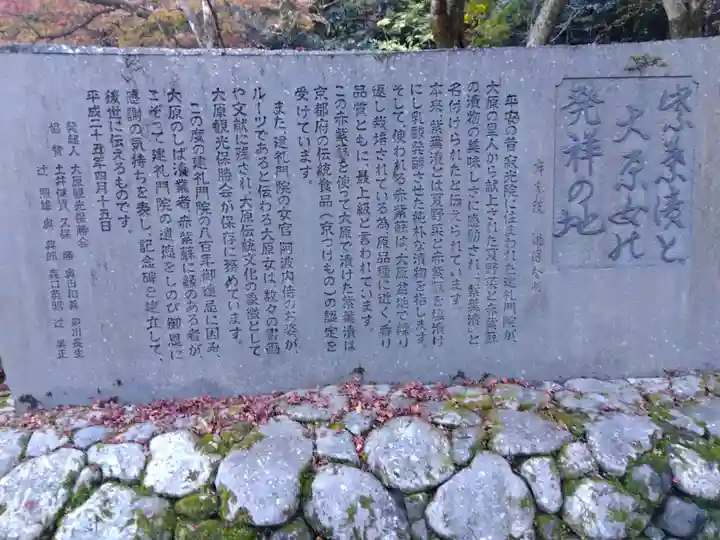 紫葉漬と
大原女の
発祥の地
平安の昔寂光院に住まわれた建礼門院が、
大原の里人から献上された夏野菜と赤紫蘇
の漬物の美味しさに感動され「紫葉漬」と
名付けられたと伝えられています。
本来、紫葉漬とは夏野菜と赤紫蘇を塩漬け
にし乳酸発酵させた純朴な漬物を指します。
そして、使われる赤紫蘇は大原盆地で繰り
返し栽培されている為、原品種に近く、香り
品質ともに「最上級」と言われています。
この赤紫蘇を使って大原で漬けた紫葉漬は
京都府の伝統食品(京つけもの)の認定を
受けています。
また、建礼門院の女官「阿波内侍」のお姿が、
ルーツであると伝わる大原女は数々の書画
や文献に残され、大原伝統文化の象徴として
大原観光保勝会が保存に努めています。
この度の建礼門院の八百年御遠忌に因み
大原のしば漬業者、赤紫蘇に縁のある者が、
こぞって建礼門院の遺徳をしのび御恩に
感謝の気持ちを表し、記念碑を建立して、
後世に伝えるものです。
平成二十五年四月十五日
発起人 大原観光保勝会
協賛 土井 久保 勝
辻